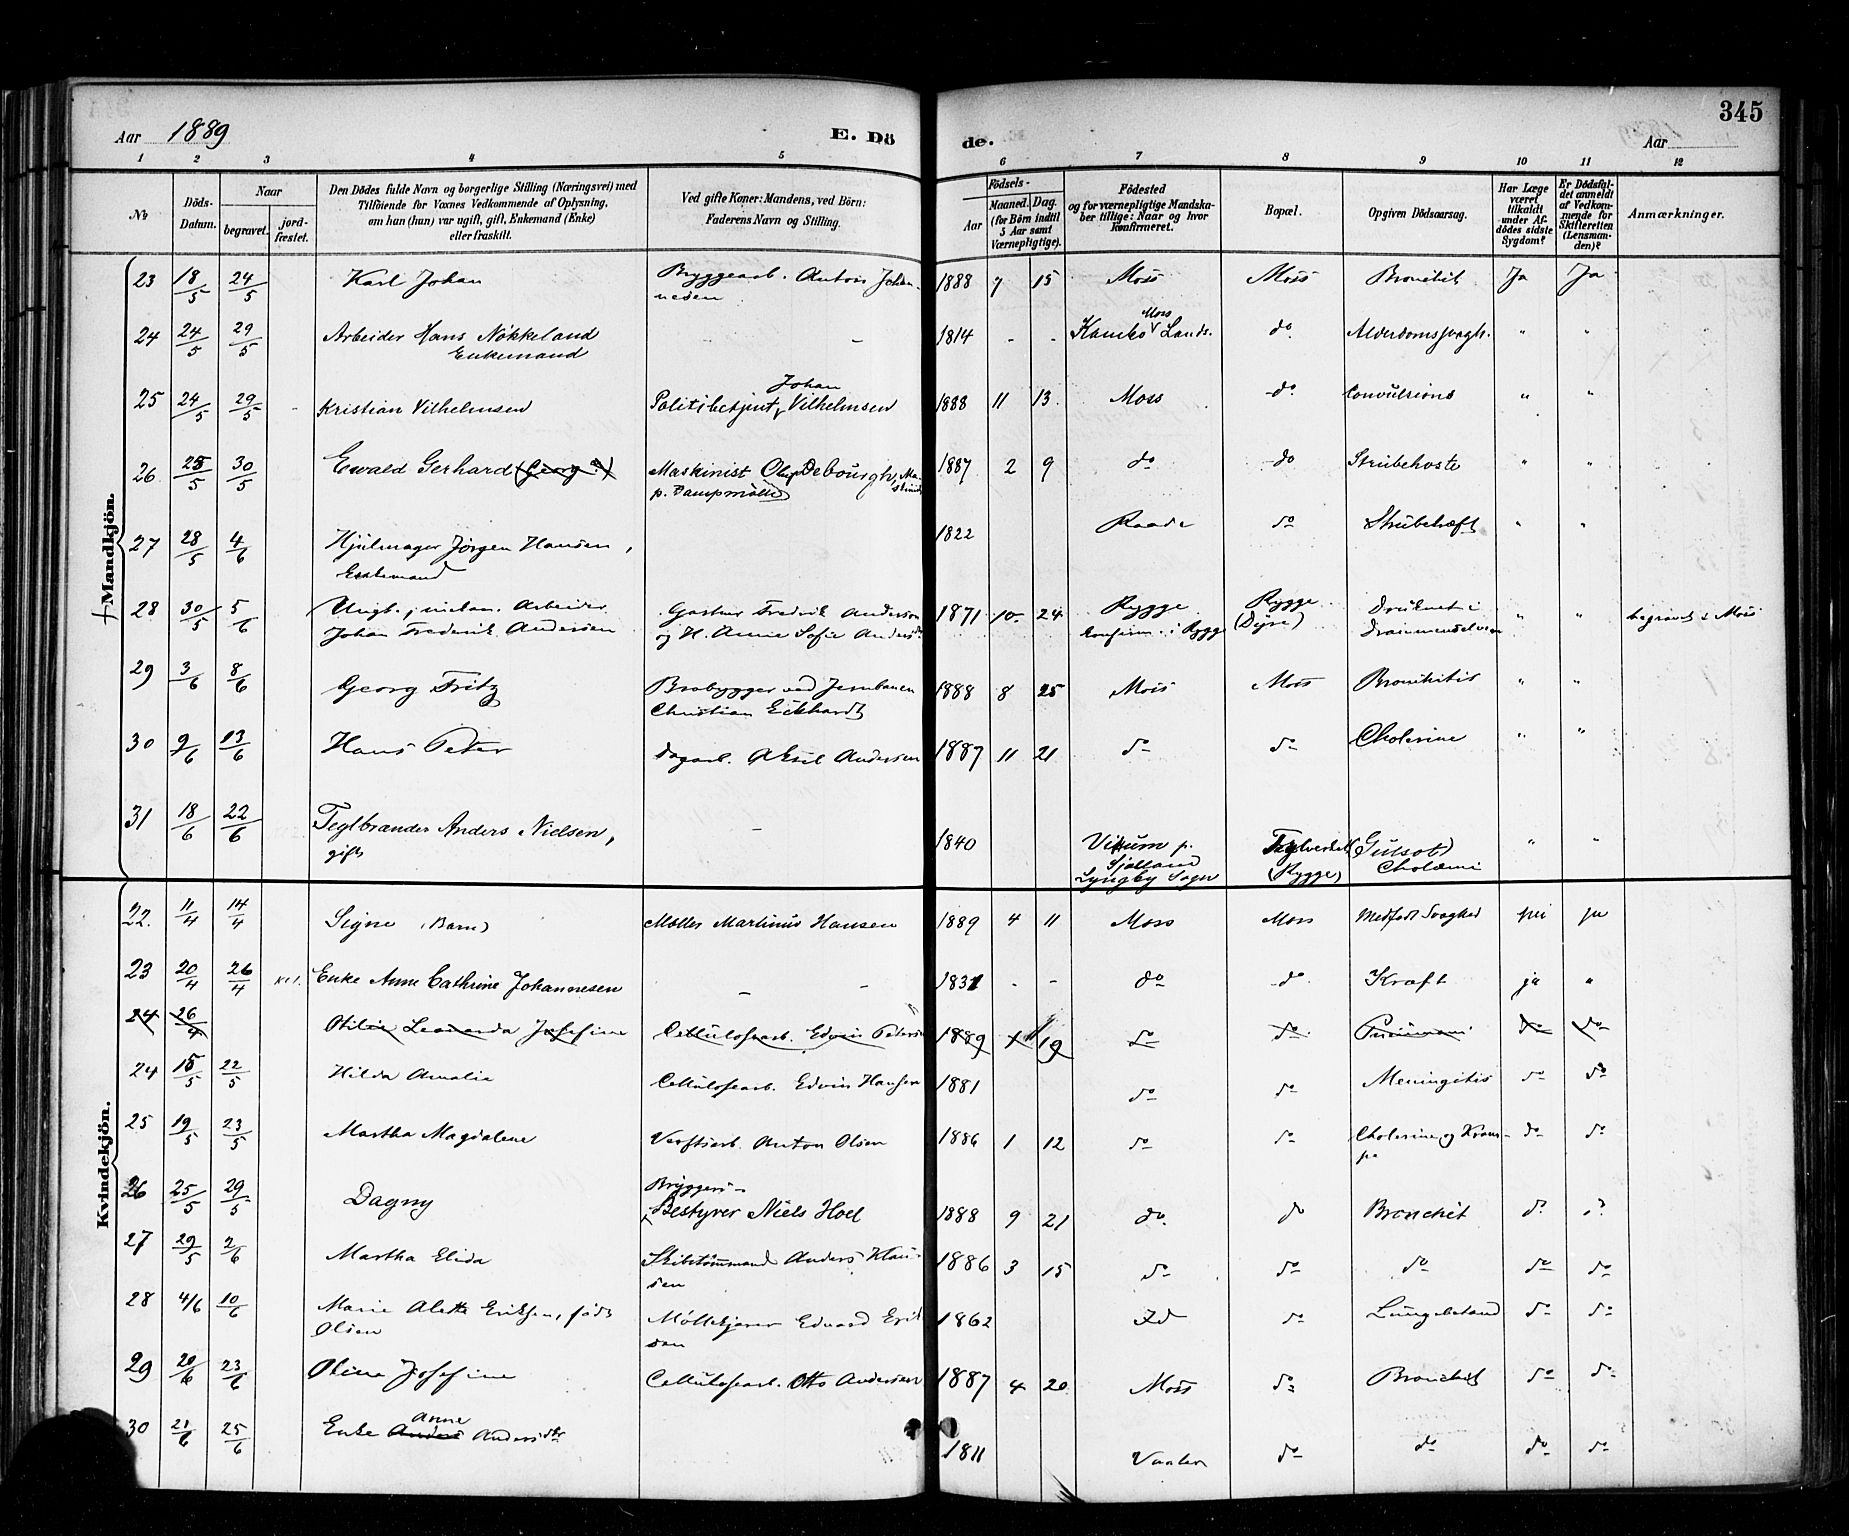 345
Aar 1889 E. Dö de. Aar
1 2 3 4 5 6 7 8 9 10 11 12
No
Döds-Datum.
Naar begravet. jordfæstet.
Den Dödes fulde Navn og borgerlige Stilling (Næringsvei) med
Tilföiende for Voxnes Vedkommende af Oplysning,
om han (hun) var ugift, gift, Enkemand (Enke)
eller fraskilt.
Ved gifte Koner: Mandens, ved Börn:
Faderens Navn og Stilling.
Födsels-
Aar Maaned. Dag.
(for Börn indtil
5 Aar samt
Værnepligtige).
Födested
og for værnepligtige Mandskaber tillige: Naar og hvor
konfirmeret.
Bopæl.
Opgiven Dödsaarsag.
Har Læge været tilkaldt under Afdödes sidste Sygdom?
Er Dödsfaldet anmeldt af Vedkommende for Skifteretten (Lensmanden)?
Anmærkninger.
Mandkjön.
23 18/5 24/5 Karl Johan Bryggearb. Anton Johannesen 1888 7 15 Moss Moss Bronchit Ja Ja
24 24/5 29/5 Arbeider Hans Nökkeland Enkemand - 1814 - - Kambo Moss Lands. do Alderdomssvagh. " "
25 24/5 29/5 - Kristian Vilhelmsen Politibetjent Johan Vilhelmsen 1888 11 13 Moss do Convulsions " "
26 25/5 30/5 Ewald Gerhard (Georg?) Maskinist Debourgh p. Dampmölle 1887 2 9 do do Strubehoste " "
27 28/5 4/6 Hjulmager Jörgen Hansen, Enkemand 1822 Raade do Strubekræft " "
28 30/5 5/6 Ungk. Arbeider Johan Frederik Andersen Frederik Andersen og H. Anne Sofie 1871 10 24 Rygge konfirm. i Rygge Rygge (Dyre) Druknet i Drammenselven " " begravet i Moss
29 3/6 8/6 Georg Fritz Brobygger ved Jernbanen Christian Eckhardt 1888 8 25 Moss Moss Bronchitis " "
30 9/6 13/6 Hans Peter Dagarb. Aksel Andersen 1887 11 21 do do Cholerine " "
31 18/6 22/6 Teglbrænder Anders Nielsen, gift - 1840 p. Sjælland Lyngby Sogn Teglverket (Rygge) Gulsot Cholæmi " "
Kvindekjön.
22. 11/4 14/4 Signe (Barn) Möller Martinus Hansen 1889 4 11 Moss Moss Medfödt Svaghed nei ja
23 20/4 26/4 Enke Anne Cathrine Johannesen - - 1831 - - do do Kræft ja "
24 26/4 Otilie Leonarda Josefine Cellulosearb. Edvin Petersen 1889 1 19 do do do do
24 15/5 22/5 Hilda Amalia Cellulosearb. Edvin Hansen 1881 do do Meningitis do do
25 19/5 23/5 Martha Magdalene Verftsarb. Anton Olsen 1886 1 12 do do Cholerine og Krampe do do
26 25/5 29/5 Dagny Bryggeri-Bestyrer Niels Hoel 1888 9 21 do. do Bronchit do do
27 29/5 2/6 Martha Elida Skibstömmermand Anders Klausen 1886 3 15 do do do do do
28 4/6 10/6 Marie Alette Eriksen, födt Olsen Möllekjörer Edvard Eriksen 1862 Id do Lungebetænd do do
29 20/6 23/6 Oline Josefine Cellulosearb. Otto Andersen 1887 4 20 Moss do Bronchit do do
30 21/6 25/6 Enke Anders Anne Andersdtr 1811 Vaaler do do do do